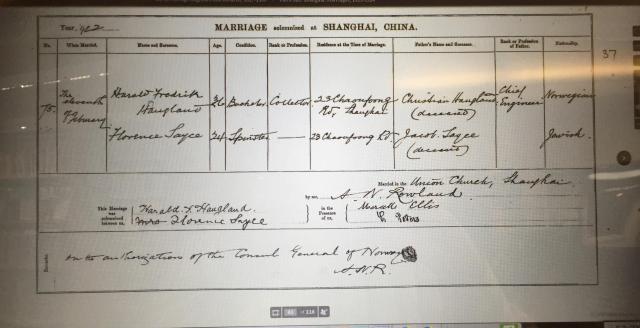 Year. 1922 MARRIAGE solemnized at SHANGHAI, CHINA.
No. When Married. Name and Surname. Age. Condition. Rank or Profession. Residence at the Time of Marriage. Father's Name and Surname. Rank or Profession of Father. Nationality.
37
75. The eleventh February Harald Fredrik Haugland 36 Bachelor Collector 23 Chaoufoong Rd, Shanghai Christian Haugland (deceased) Chief Engineer Norwegian
Florence Sayce 24 Spinster — 23 Chaoufoong Rd Jacob Sayce (deceased) Jewish.
Married in the Union Church, Shanghai
by me, A. N. Rowland
This Marriage was solemnized between us, Harald F. Haugland. in the Presence of us, Ellis
Florence Sayce
Remarks. authorization of the Consul General of Norway
A.N.R.